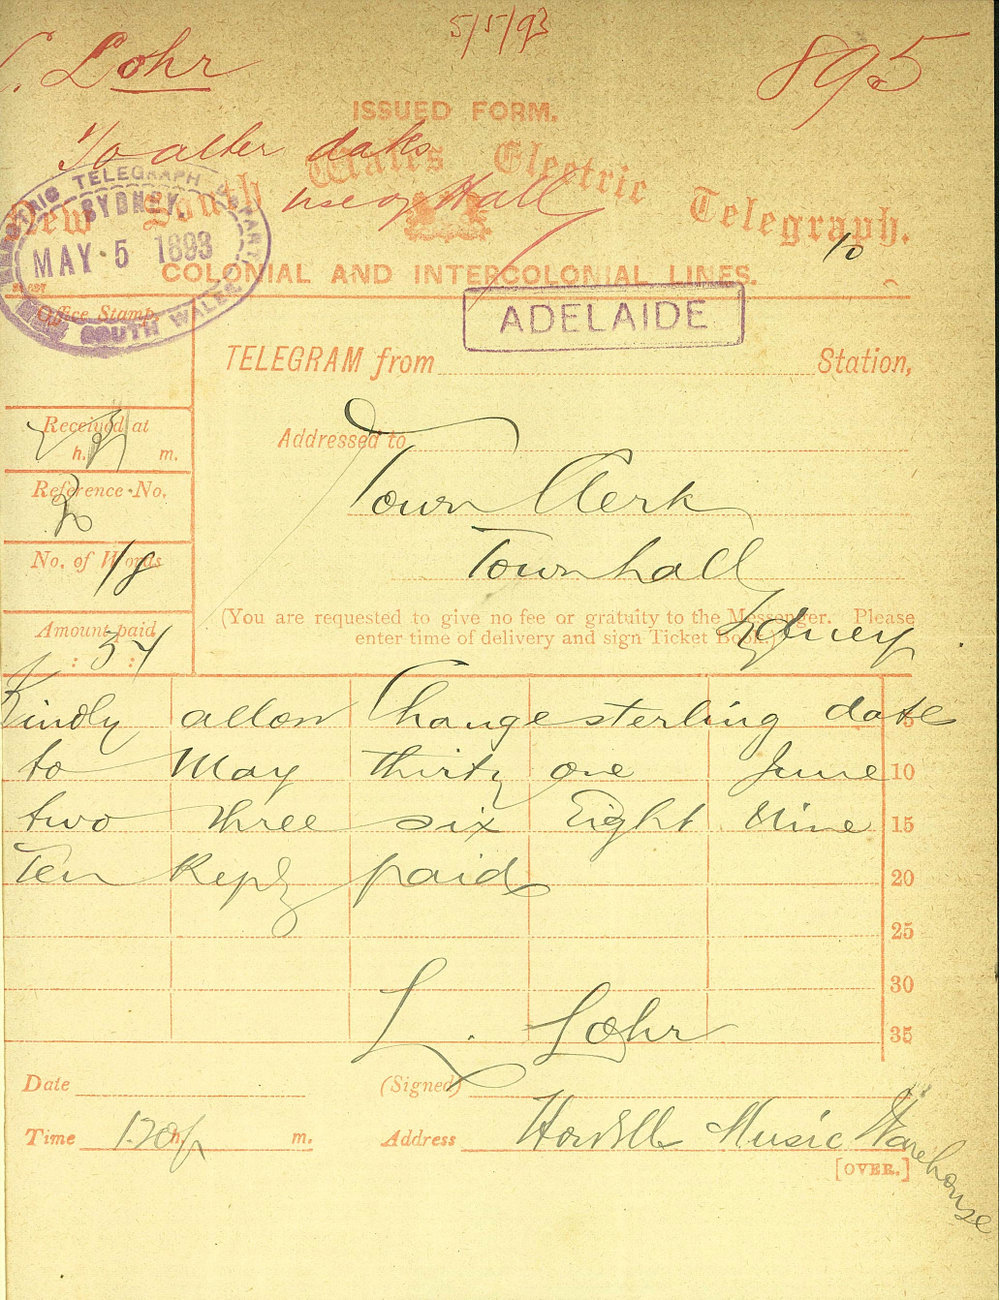 5/5/93
L. Lohr
895
ISSUED FORM.
To alter dates
use of Hall
New South Wales Electric Telegraph.
ELECTRIC TELEGRAPH DEPART
SYDNEY.
MAY 5 1893
NEW SOUTH WALES
10
COLONIAL AND INTERCOLONIAL LINES.
Office Stamp.
ADELAIDE
TELEGRAM from Station,
Received at
h. m.
Addressed to
Town Clerk
Reference No.
No. of Words
18
Townhall
(You are requested to give no fee or gratuity to the Messenger. Please
enter time of delivery and sign Ticket Book.)
Sydney.
Amount paid
: 3 : 4
Kindly allow Change sterling date
5
to May thirty one June
10
two three six Eight Nine
15
Ten Reply paid
20
25
30
L. Lohr
35
Date
(Signed)
Time 1.20 p h. m.
Address Howells Music Warehouse
[OVER.]